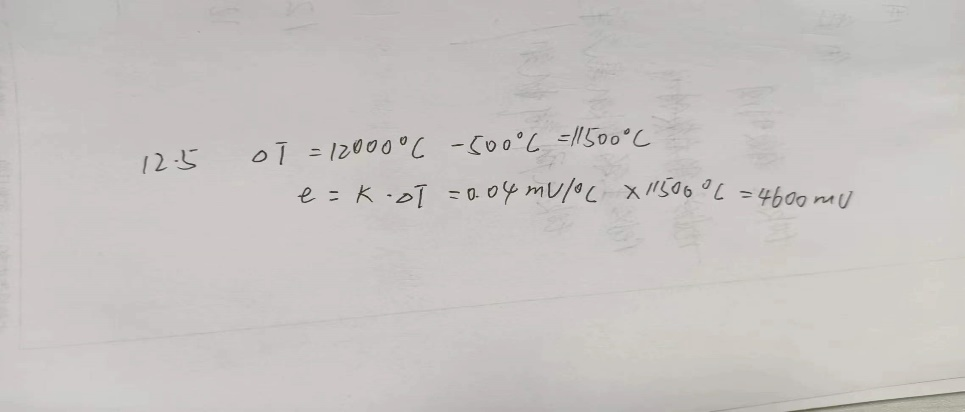 12.5 ΔT = 12000°C - 500°C = 11500°C
e = K · ΔT = 0.04 mV/°C × 11500°C = 4600 mV